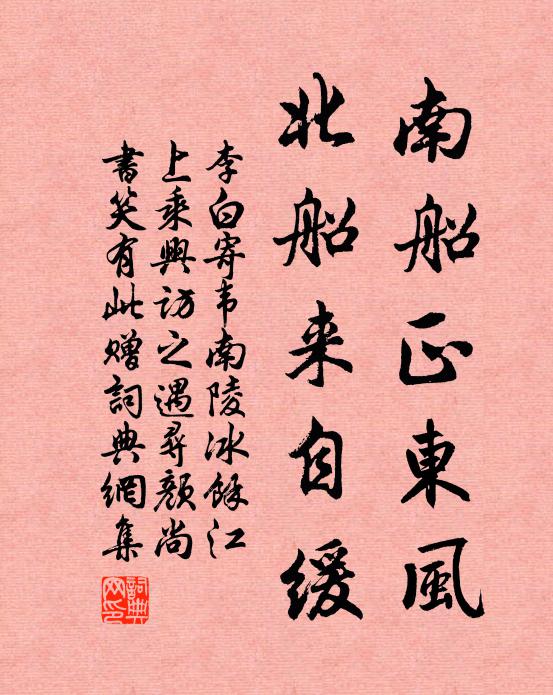 南船正東風
北船来自緩
李白寄韦南陵冰餘江
上乘興访之遇尋顏尚
書笑有此赠詞典網集
詞典網印